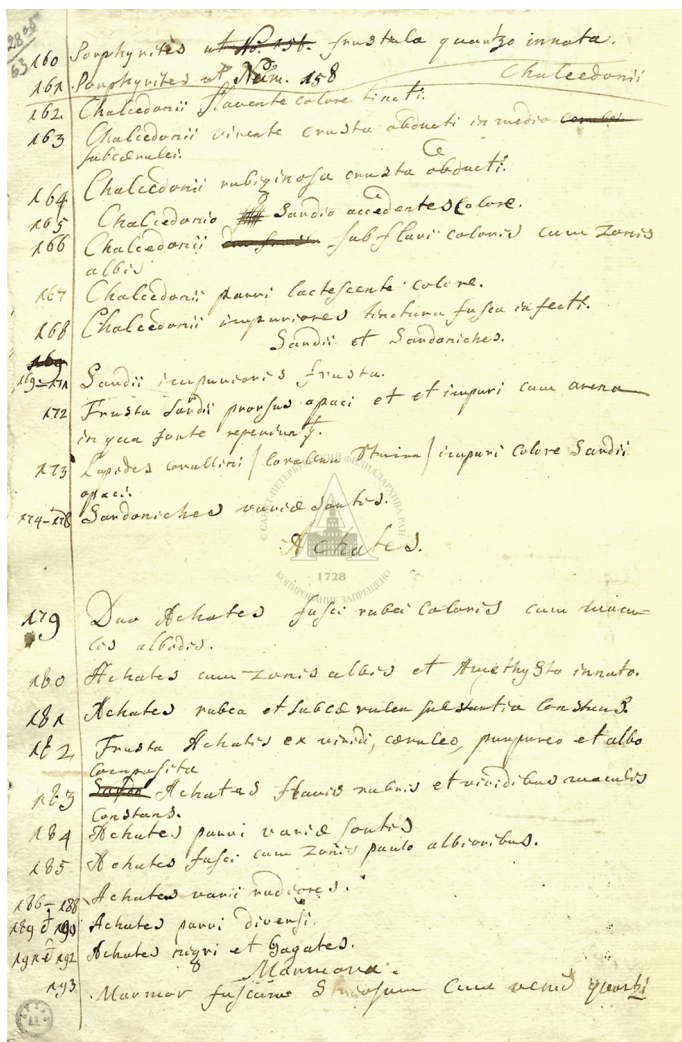 2805
63
160 Porphyrites ut No. 156. frustula quartzo innata.
161. Porphyrites ut Num. 158
Chalcedonii
162. Chalcedonii flavente colore tincti.
163 Chalcedonii virente crusta obducti in medio
subcærulei.
164 Chalcedonii rubiginosa crusta obducti.
165 Chalcedonio Sardio accedentes colore.
166 Chalcedonii subflavi coloris cum zonis
albis
167 Chalcedonii parvi lactescente colore.
168 Chalcedonii impuriores tinctura fusca infecti.
Sardii et Sardoniches.
169
169-171 Sardii impurioris frusta.
172 Frusta Sardii prorsus opaci et et impuri cum arena
in qua sponte reperiunt.
173 Lapides corallini / / impuri colore Sardii
opaci.
174-178 Sardoniches variæ sortis.
Achates.
САНКТ-ПЕТЕРБУРГСКИЙ ФИЛИАЛ АРХИВА РАН
1728
КОПИРОВАНИЕ ЗАПРЕЩЕНО
179 Duo Achates fusci rubei coloris cum macu-
lis albidis.
180 Achates cum zonis albis et Amethysto innato.
181 Achates rubea et subcærulea substantia constans.
182 Frusta Achatis ex viridi, cæruleo, purpureo et albo
composita
183 Achates flavis rubris et viridibus maculis
constans.
184 Achates parvi variæ sortis
185 Achates fusci cum zonis paulo albioribus.
186-188 Achates varii rudiores.
189 et 190 Achates parvi diversi.
191 et 192 Achates nigri et Gagates.
Marmora.
193 Marmor fuscum cum venis quartzi